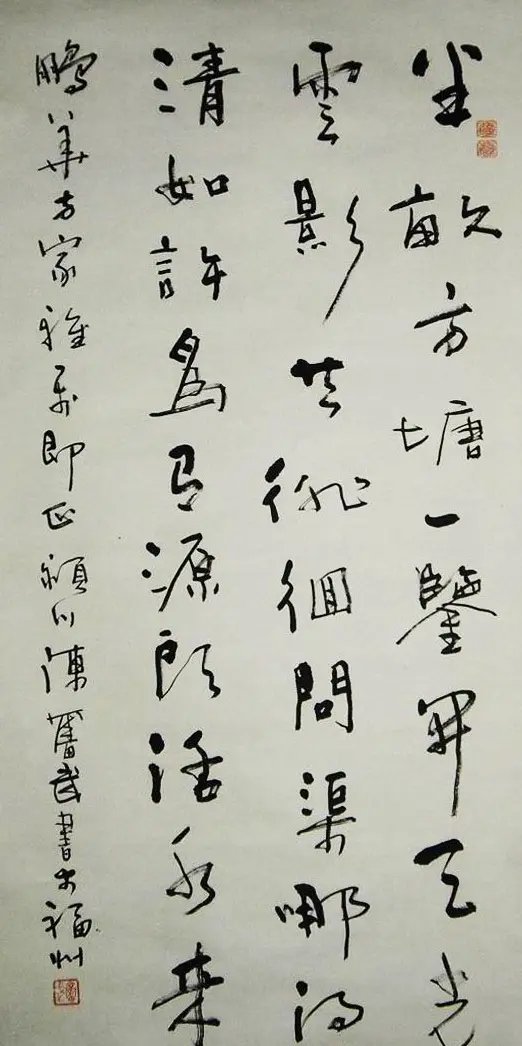 半畝方塘一鑒開天光
雲影共徘徊問渠哪得
清如許為有源頭活水来
鵬華方家雅属即正潁川陳奮武書於福州